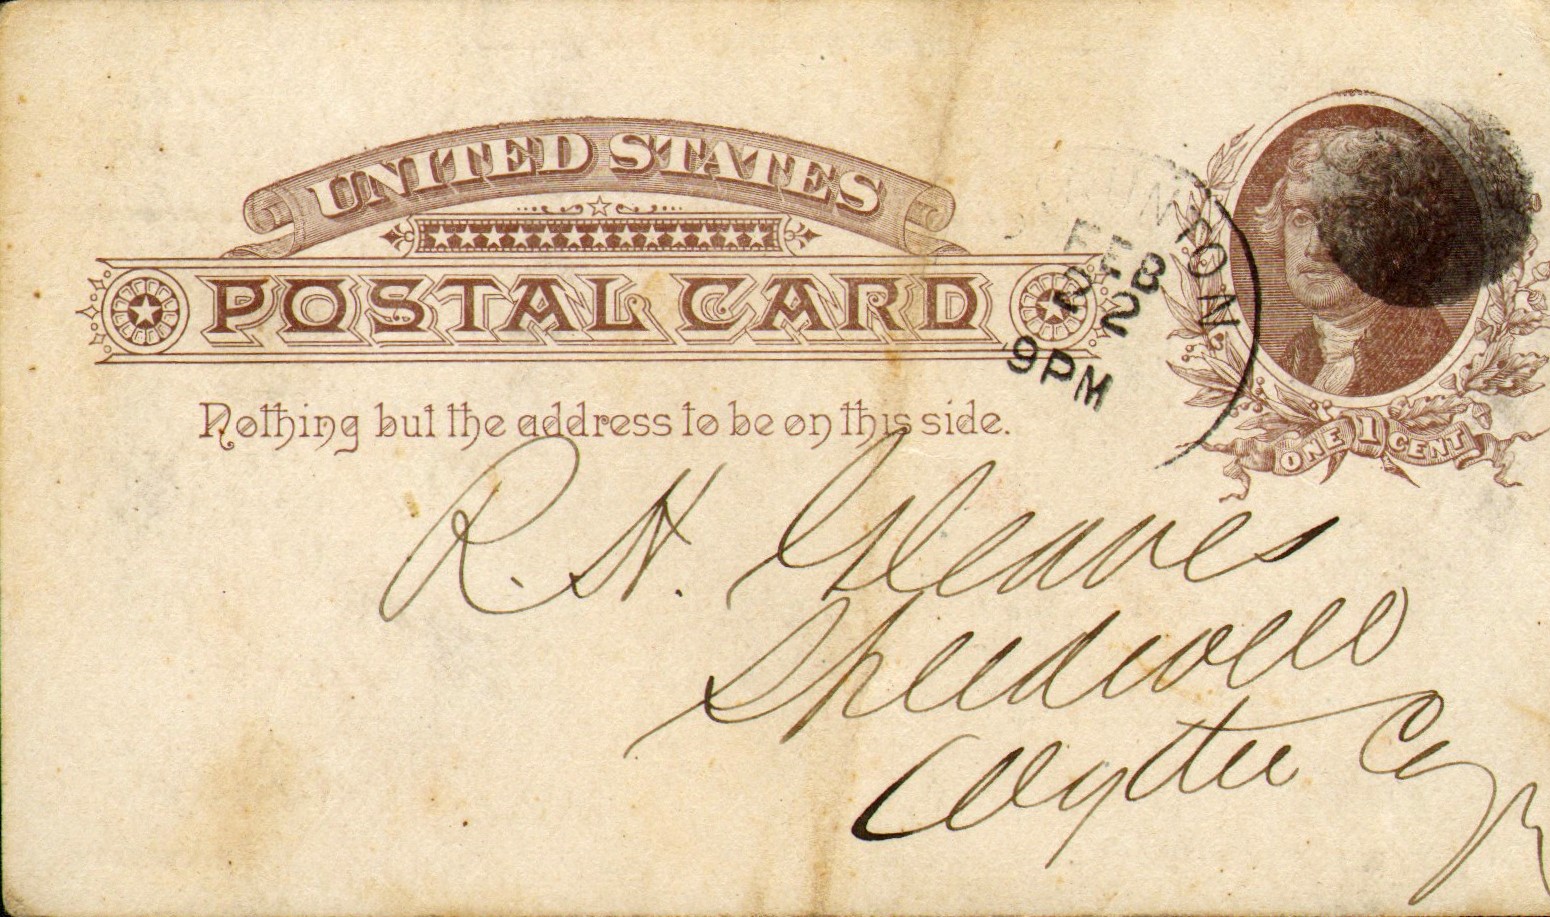 UNITED STATES
POSTAL CARD
Nothing but the address to be on this side.
FEB
2
9PM
ONE 1 CENT
R. H. Gleaves
Speedwell
Wythe Co